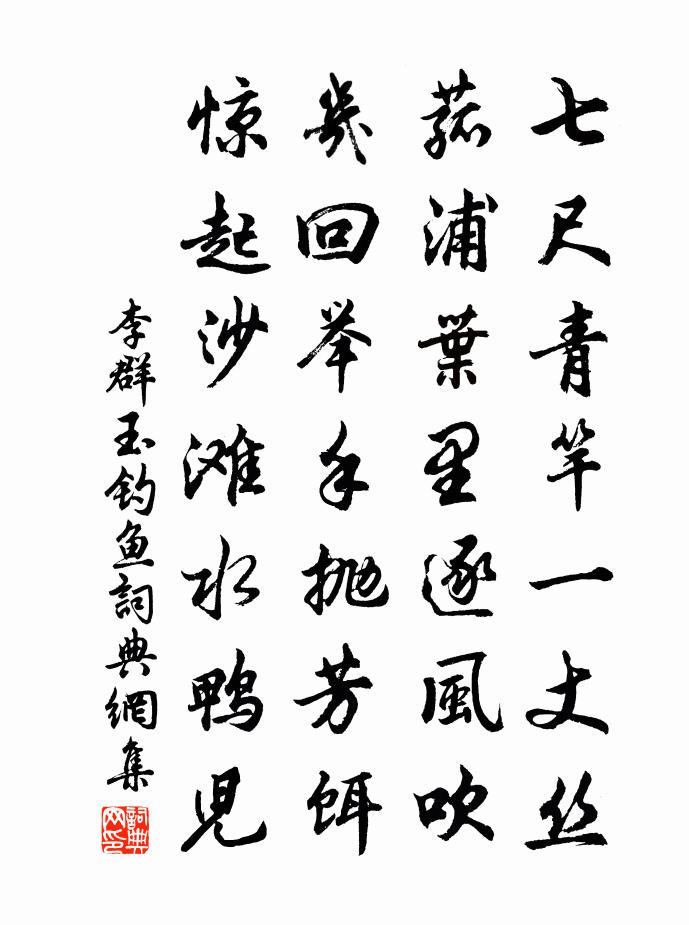 七尺青竿一丈丝
菰浦葉里逐風吹
幾回举手抛芳饵
惊起沙滩水鸭児
李群玉钓鱼詞典網集
詞典网印